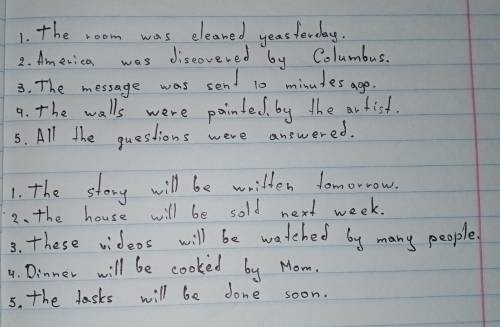 1. The room was cleaned yeasterday.
2. America was discovered by Columbus.
3. The message was sent 10 minutes ago.
4. The walls were painted by the artist.
5. All the questions were answered.
1. The story will be written tomorrow.
2. The house will be sold next week.
3. These videos will be watched by many people.
4. Dinner will be cooked by Mom.
5. The tasks will be done soon.